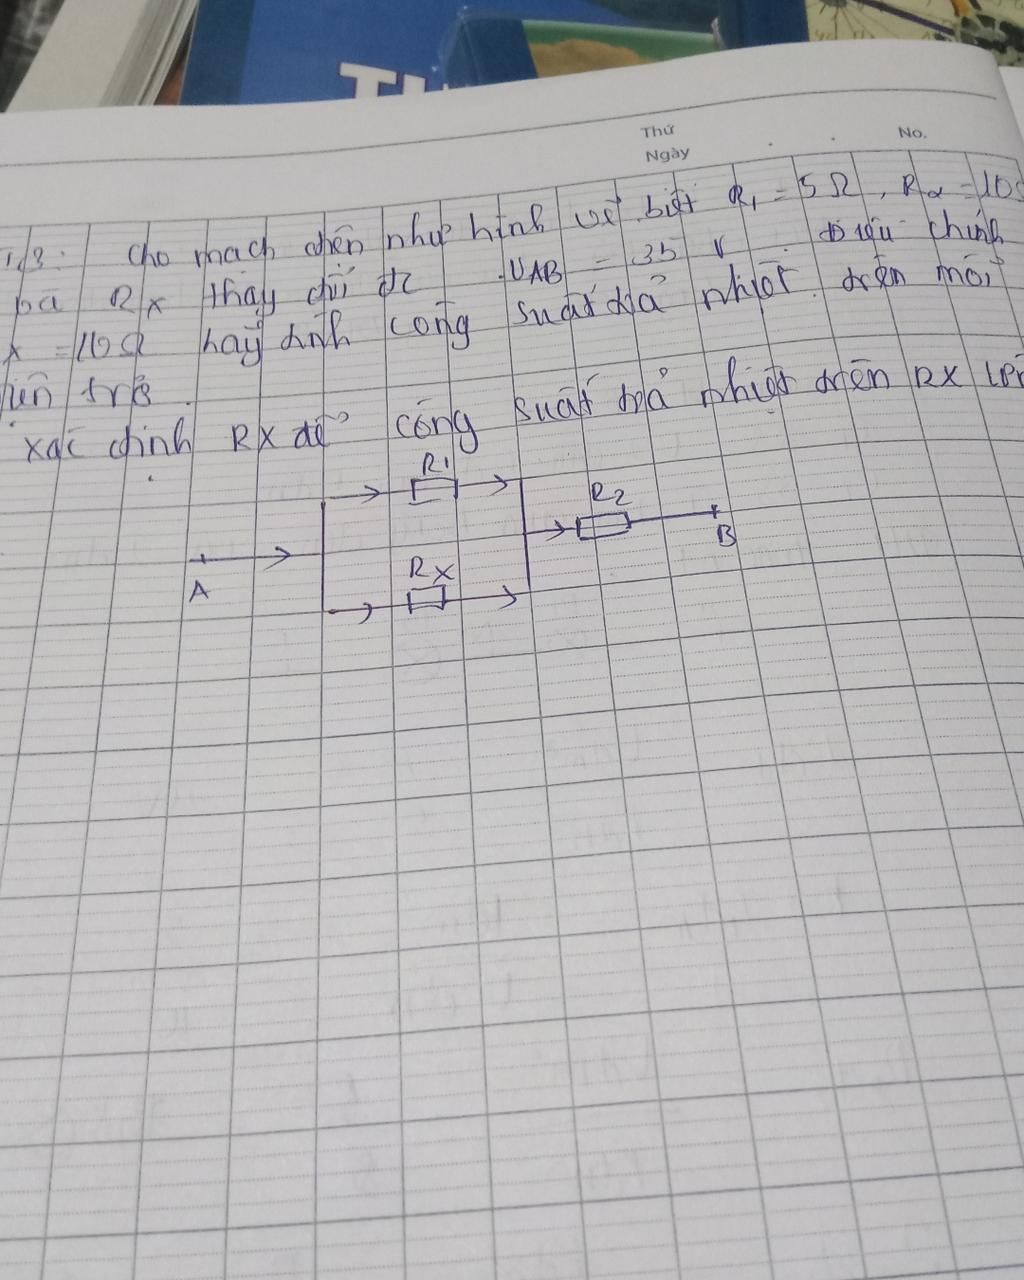 Thứ
Ngày
No.
Cho mạch điện như hình vẽ biết R₁ = 5 Ω, R₂ = 10
Rx thay đổi đc UAB = 35 V Điều chỉnh
x = 10Ω hãy tính công suất toả nhiệt trên mỗi
trở.
xác định Rx để công suất toả nhiệt trên RX
R1
R2
A
B
RX